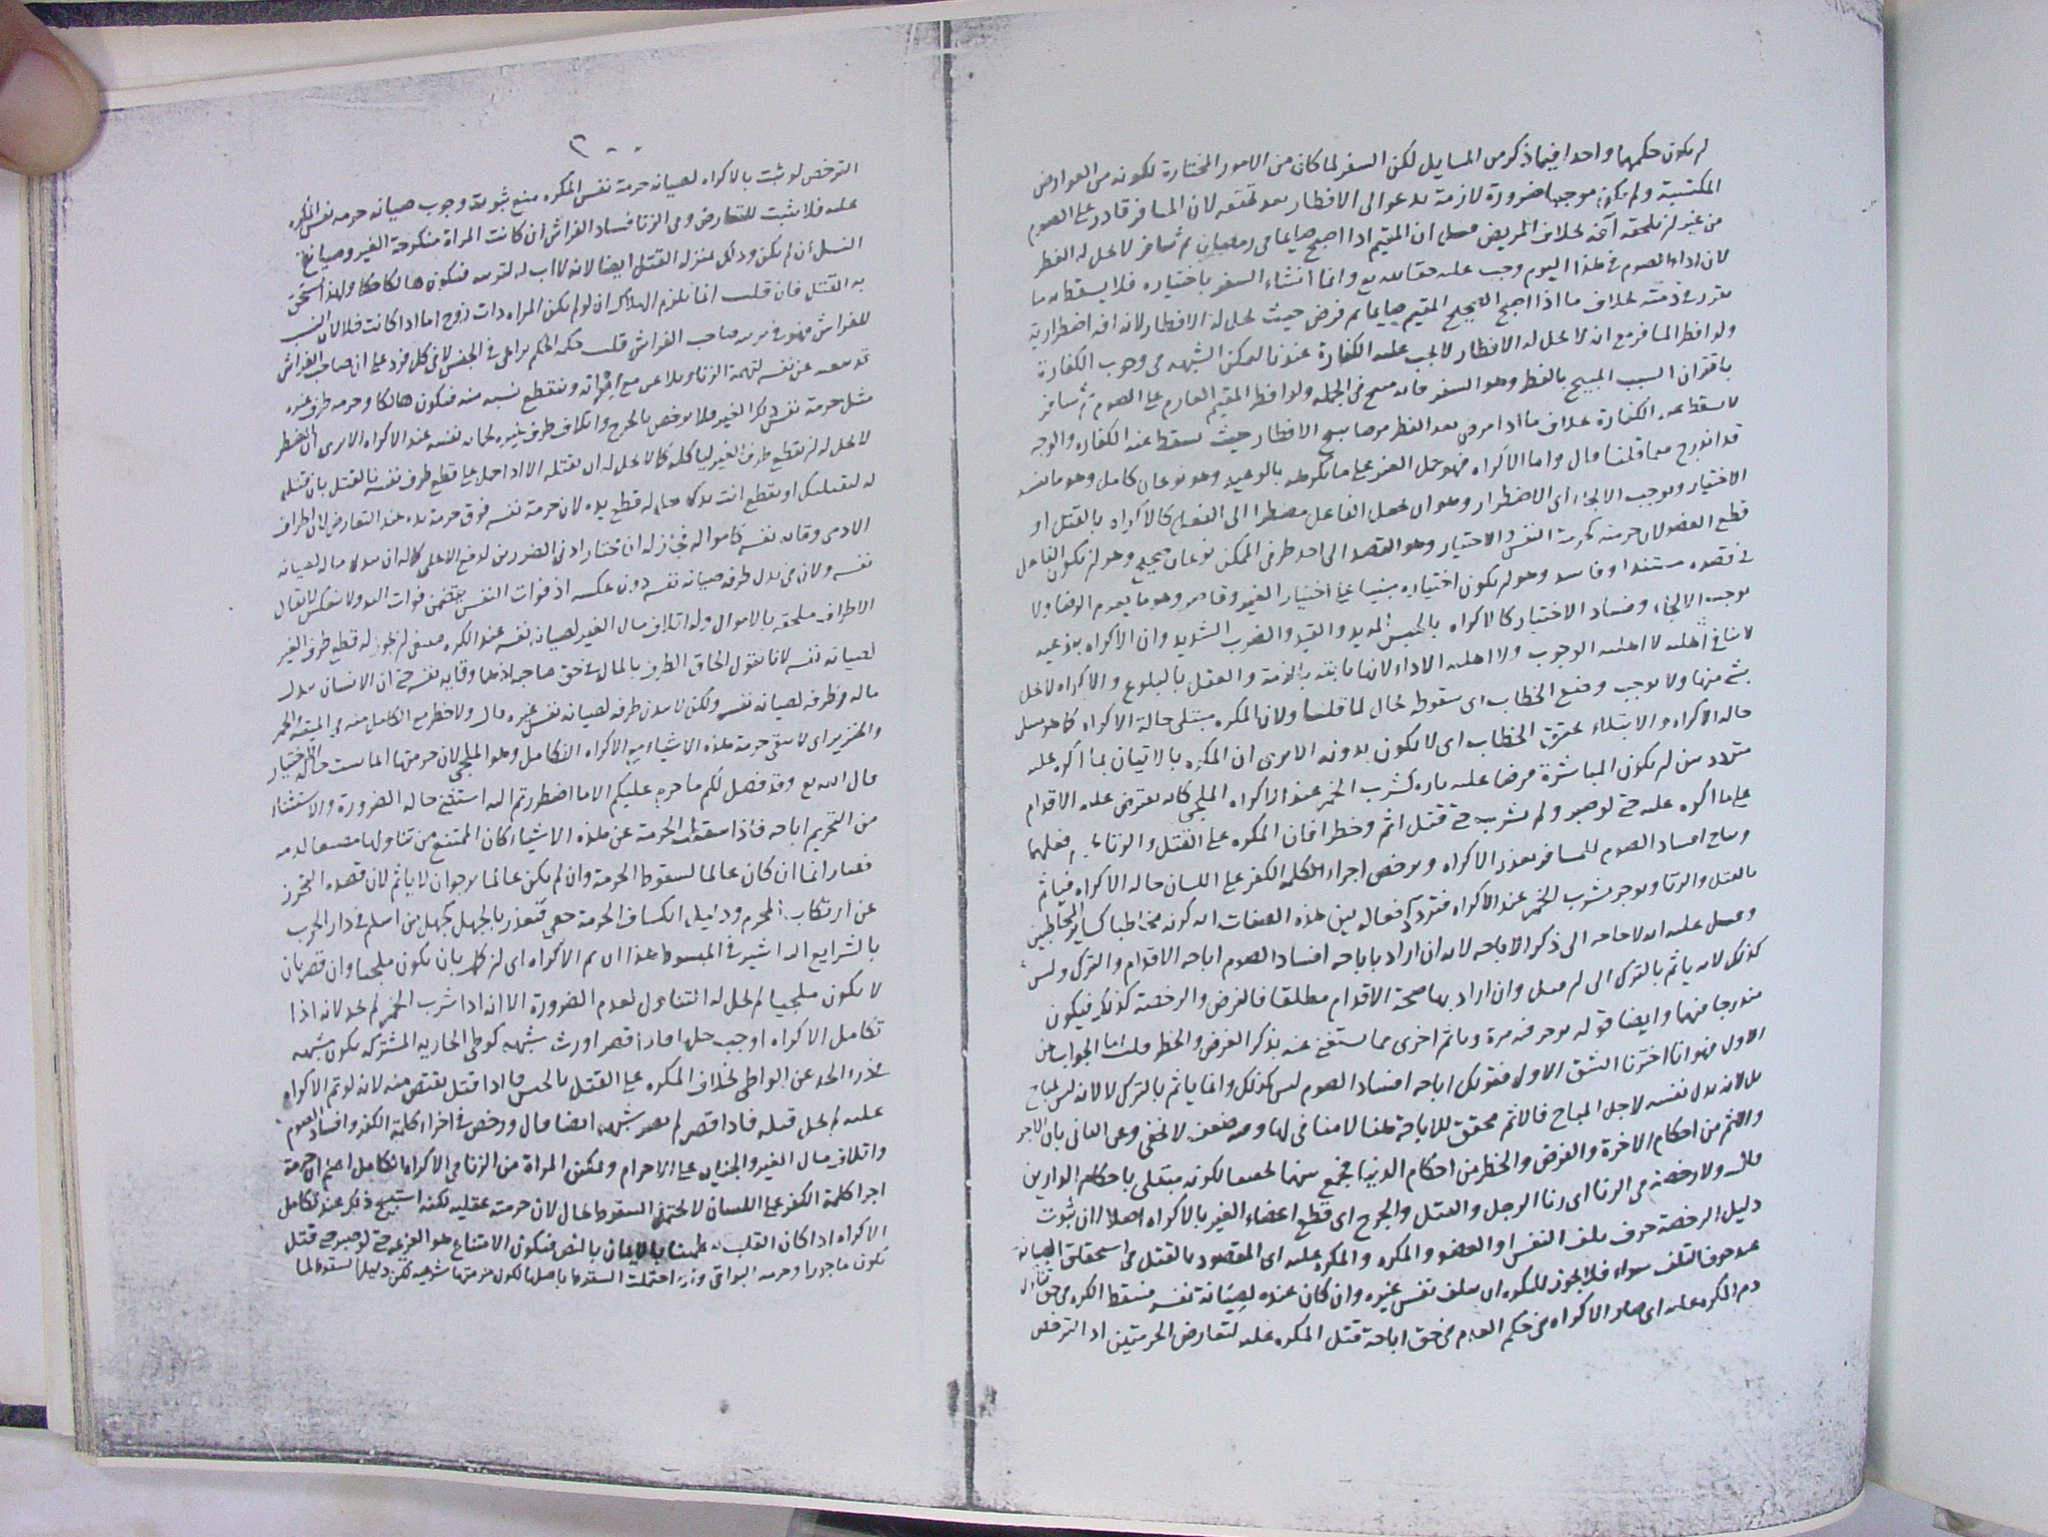 لم يكون حكمهما واحدا فيما ذكر من المسايل لكن السفر لما كان من الامور المختارة لكونه من العوارض
المكتسبة ولم يكن موجبا ضرورة لازمة يدعو الى الافطار بعد تحققه لان المسافر قادر على الصوم
من غير ان يلحقه آفة بخلاف المريض ان المقيم اذا اصبح صايما فى رمضان ثم سافر لا يحل له الفطر
لان اداء الصوم فى هذا اليوم وجب عليه حقا لله تع وانما انشاء السفر باختياره فلا يسقط به ما
تقرر فى ذمته بخلاف ما اذا اصبح الصحيح المقيم صايما ثم مرض حيث يحل له الافطار لانه آفة اضطرارية
ولو افطر المسافر مع انه لا يحل له الافطار لا يجب عليه الكفارة عندنا لتمكن الشبهه فى وجوب الكفارة
باقتران السبب المبيح بالفطر وهو السفر فانه مبيح فى الجملة ولو افطر المقيم العازم على الصوم ثم سافر
لا يسقط عنه الكفارة بخلاف ما اذا مرض بعد الفطر مرضا يبيح الافطار حيث يسقط عنه الكفارة والوجه
قد اندرج فيما قلنا قال واما الاكراه فهو حمل الغير على ما يكرهه بالوعيد وهو نوعان كامل وهو ما يفسد
الاختيار ويوجب الالجاء اى الاضطرار وهو ان يجعل الفاعل مضطرا الى الفعل كالاكراه بالقتل او
قطع العضو لان حرمته كحرمة النفس والاختيار وهو القصد الى احد طرفى الممكن نوعان صحيح وهو ان يكون الفاعل
فى قصده مستبدا وفاسد وهو ان يكون اختياره مبنيا على اختيار الغير وقاصر وهو ما يعدم الرضا ولا
يوجب الالجاء وفساد الاختيار كالاكراه بالحبس المديد والقيد والضرب الشديد وان الاكراه بنوعيه
لا ينافى اهليه لا اهليه الوجوب ولا اهليه الاداء لانها ثابتة بالذمة والعقل والبلوغ والاكراه لا يخل
بشى منها ولا يوجب وضع الخطاب اى سقوطه بحال لما قلنا ولان المكره مبتلى حالة الاكراه كما هو مبتلى
حاله الاكراه والابتلاء يحقق الخطاب اى لا يكون بدونه الا يرى ان المكره بالاتيان بما اكره عليه
متردد بين ان يكون المباشرة فرضا عليه تارة كشرب الخمر عند الاكراه الملجى فانه يفترض عليه الاقدام
على ما اكره عليه حتى لو صبر ولم يشرب حتى قتل اثم وخطرا فان المكره على القتل والزنا يحرم فعلهما
ويباح افساد الصوم للمسافر بعذر الاكراه ويرخص اجراء كلمة الكفر على اللسان حاله الاكراه فياثم
بالقتل والزنا ويوجر بشرب الخمر عند الاكراه فتردد افعاله بين هذه الصفات انه كونه مخاطبا كساير المخاطبين
وقيل عليه انه لا حاجه الى ذكر الاباحه لانه ان اراد باباحه افساد الصوم اباحه الاقدام والترك وليس
كذلك لانه ياثم بالترك الى ان قتل وان اراد بها صحة الاقدام مطلقا فالفرض والرخصة كذلك فيكون
مندرجا فيهما وايضا قوله يوجر فيه مرة وياثم اخرى مما يستغنى عنه بذكر الفرض والخطر قلت اما الجواب عن
الاول فهو انا اخترنا الشق الاول فقولك اباحه افساد الصوم ليس كذلك وانما ياثم بالترك لا لانه ليس بمباح
بل لانه بذل نفسه لاجل المباح فالاثم محقق للاباحة ههنا لا مناف لها وفيه ضعف لا يخفى وعن الثانى بان الاجر
والاثم من احكام الاخرة والفرض والخطر من احكام الدنيا فجمع بينهما تحقيقا لكونه مبتلى باحكام الدارين
قال ولا رخصة فى الزنا اى زنا الرجل والقتل والجرح اى قطع اعضاء الغير بالاكراه اصلا لان ثبوت
دليل الرخصة خوف تلف النفس او العضو والمكره والمكره عليه اى المقصود بالقتل فى استحقاق الصيانه
عند خوف التلف سواء فلا يجوز للمكره ان يتلف نفس غيره وان كان عنده لصيانة نفسه فسقط الكره فى حق تناول
دم المكره عليه اى صار الاكراه فى حكم العدم فى حق اباحة قتل المكره عليه لتعارض الحرمتين اذ الترخص
٢٠٠
الترخص لو ثبت بالاكراه لصيانه حرمة نفس المكره منع ثبوت وجوب صيانه حرمه نفس المكره
عليه فلا يثبت للتعارض وفى الزنا فساد الفراش ان كانت المراة منكوحة الغير وضياع
النسل ان لم تكن وذلك بمنزله القتل ايضا لانه لا اب له لتربيته فيكون هالكا حكما ولهذا استحق
به القتل فان قلت انما يلزم الهلاك ان لو لم تكن المراه ذات زوج اما اذا كانت فلا لان النسب
للفراش فهو فى تربيه صاحب الفراش قلت حكمه الحكم يراعى فى الجنس لا فى كل فرد على ان صاحب الفراش
قد ينفيه عن نفسه لتهمة الزنا ويلاعن مع امراته وينقطع نسبه منه فيكون هالكا وحرمه طرف غيره
مثل حرمة نفس ذلك الغير فلا يرخص بالجرح واتلاف طرف غيره لحمايه نفسه عند الاكراه الا يرى ان المضطر
لا يحل له ان يقطع طرف الغير لياكله كما لا يحل له ان يقتله الا اذا حمل على قطع طرف نفسه بالقتل بان قيل
له لنقتلنك او تقطع انت يدك حل له قطع يده لان حرمة نفسه فوق حرمة يده عند التعارض لان اطراف
الادمى وقايه نفسه كامواله فجاز له ان يختار ادنى الضررين لدفع الاعلى كما له ان يبذل ماله لصيانه
نفسه ولان فى بذل طرفه صيانه نفسه دون عكسه اذ فوات النفس يتضمن فوات اليد ولا ينعكس لا يقال
الاطراف ملحقه بالاموال وله اتلاف مال الغير لصيانه نفسه عند الكره فينبغى ان يجوز له قطع طرف الغير
لصيانه نفسه لانا نقول الحاق الطرف بالمال فى حق صاحبه اذ هما وقايه نفسه حتى ان الانسان يبذل
ماله وطرفه لصيانه نفسه ولكن لا يبذل طرفه لصيانه نفس غيره قال ولا خطر مع الكامل منه فى الميتة والخمر
والخنزير اى لا يبقى حرمة هذه الاشياء بالاكراه الكامل وهو الملجى لان حرمتها انما ثبتت حالة الاختيار
قال الله تع وقد فصل لكم ما حرم عليكم الا ما اضطررتم اليه استثنى حاله الضرورة والاستثناء
من التحريم اباحه فاذا سقطت الحرمة عن هذه الاشياء كان الممتنع من تناولها مضيعا لدمه
فصار اثما ان كان عالما لسقوط الحرمة وان لم يكن عالما يرجى ان لا ياثم لان قصده التحرز
عن ارتكاب المحرم ودليل انكشاف الحرمة خفى فتعذر بالجهل كجهل من اسلم فى دار الحرب
بالشرايع اليه اشير فى المبسوط هذا ان تم الاكراه اى ان كمل بان يكون ملجيا وان قصر بان
لا يكون ملجيا لم يحل له التناول لعدم الضرورة الا انه اذا شرب الخمر لم يحد لانه اذا
تكامل الاكراه اوجب حلها فاذا قصر اورث شبهه كوطى الجاريه المشتركه يكون شبهه
تدرء الحد عن الواطى بخلاف المكره على القتل بالحبس فاذا قتل يقتص منه لانه لو تم الاكراه
عليه لم يحل قتله فاذا قصر لم يصر شبهه ايضا قال ورخص فى اجراء كلمة الكفر وافساد الصوم
واتلاف مال الغير والجنايه على الاحرام وتمكين المراة من الزنا فى الاكراه الكامل اعلم ان حرمة
اجرا كلمة الكفر على اللسان لا يحتمل السقوط بحال لان حرمته عقليه لكنه استبيح ذلك عند تكامل
الاكراه اذا كان القلب مطمئنا بالايمان بالنص فيكون الامتناع هو العزيمه حتى لو صبر حتى قتل
يكون ماجورا وحرمه البواقى وان احتملت السقوط باصلها لكون حرمتها شرعيه لكن دليل السقوط لما